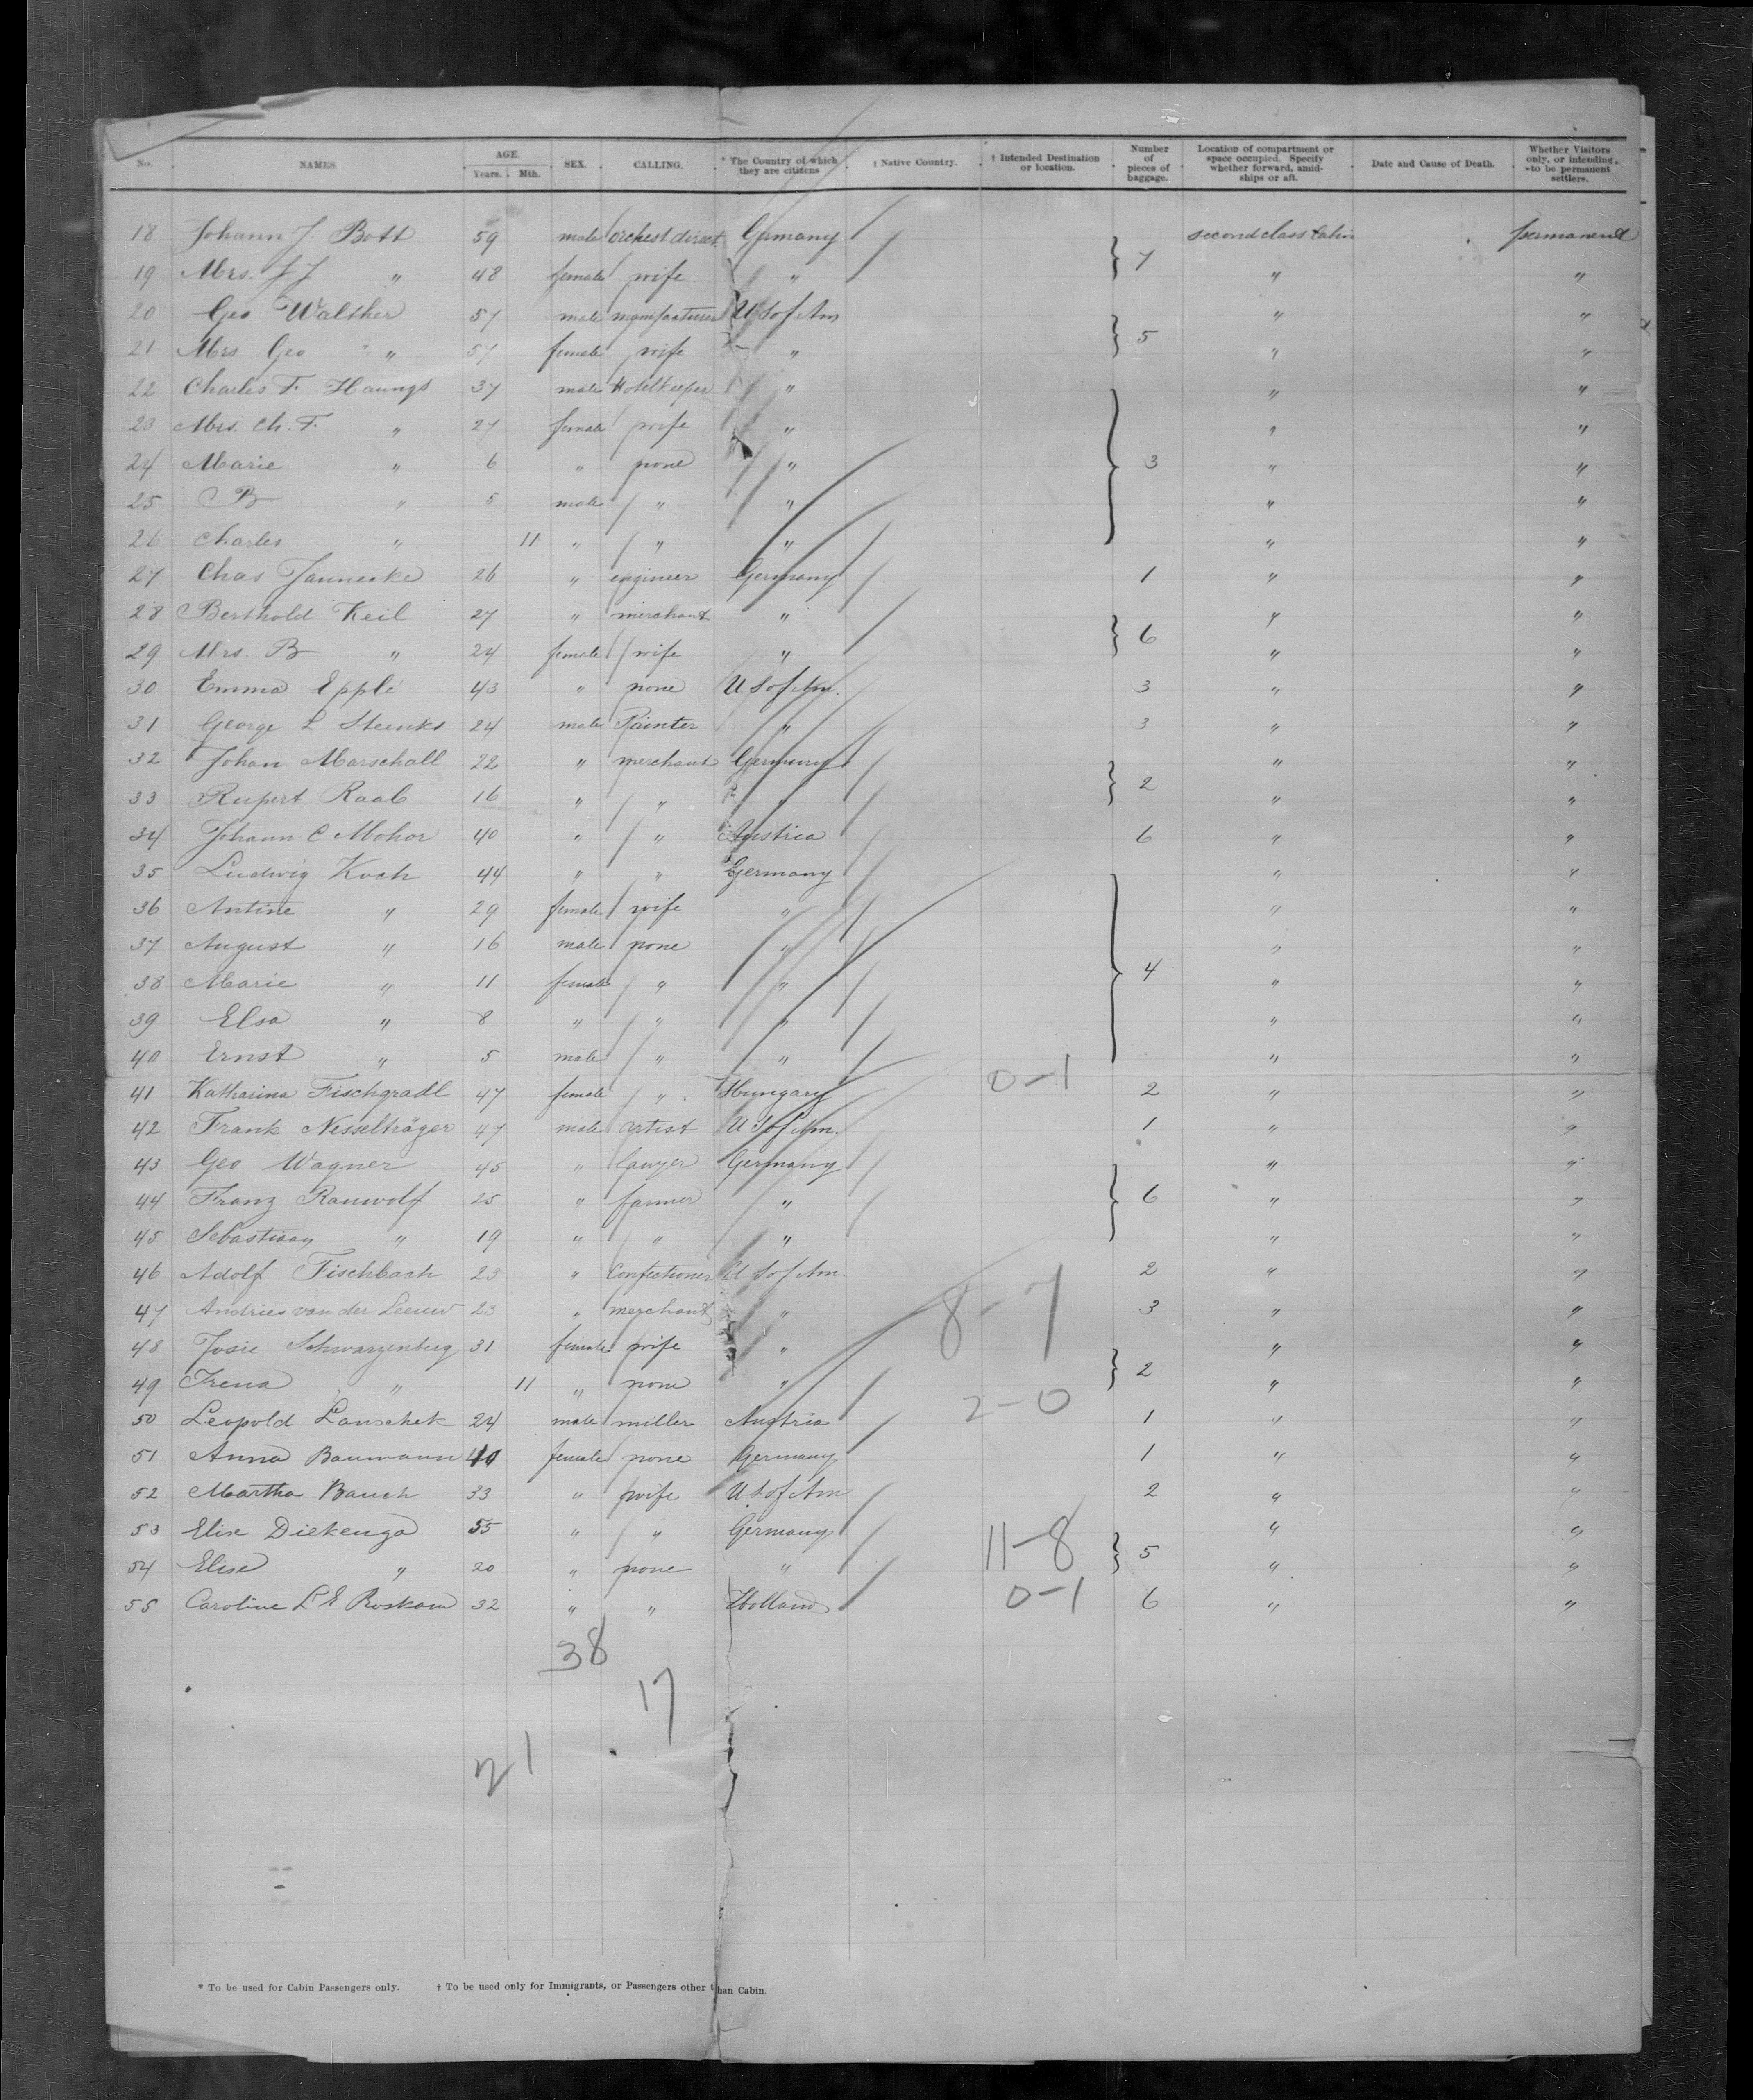 No. NAMES. AGE. Years. Mth. SEX. CALLING. * The Country of which they are citizens † Native Country. † Intended Destination or location. Number of pieces of baggage. Location of compartment or space occupied. Specify whether forward, amidships or aft. Date and Cause of Death. Whether Visitors only, or intending to be permanent settlers.
18 Johann J. Bott 59 male orchest direct. Germany second class Cabin permanent
19 Mrs. J J " 48 female wife " } 7 " "
20 Geo Walther 57 male manufacturer U S of Am " "
21 Mrs Geo " 57 female wife " } 5 " "
22 Charles F. Haungs 37 male Hotelkeeper " " "
23 Mrs. Ch. F. " 27 female wife " " "
24 Marie " 6 " none " } 3 " "
25 B " 5 male " " " "
26 Charles " 11 " " " " "
27 Chas Jannecke 26 " engineer Germany 1 " "
28 Berthold Keil 27 " merchant " " "
29 Mrs. B " 24 female wife " } 6 " "
30 Emma Epplé 43 " none U S of Am. 3 " "
31 George L Steenks 24 male Painter " 3 " "
32 Johan Marschall 22 " merchant Germany " "
33 Rupert Raab 16 " " " } 2 " "
34 Johann C Mohor 40 " " Austria 6 " "
35 Ludwig Koch 44 " " Germany " "
36 Antine " 29 female wife " " "
37 August " 16 male none " " "
38 Marie " 11 female " " } 4 " "
39 Elsa " 8 " " " " "
40 Ernst " 5 male " " " "
41 Katharina Fischgradl 47 female " Hungary 0-1 2 " "
42 Frank Nesselträger 47 male artist U S of Am. 1 " "
43 Geo Wagner 45 " lawyer Germany " "
44 Franz Rauwolf 25 " farmer " } 6 " "
45 Sebastian " 19 " " " " "
46 Adolf Fischbach 23 " Confectioner U S of Am. 2 " "
47 Andries van der Leeuw 23 " merchant " 8-7 3 " "
48 Josie Schwarzenberg 31 female wife " " "
49 Irena " 11 " none " } 2 " "
50 Leopold Lanschek 24 male miller Austria 2-0 1 " "
51 Anna Baumann 40 female none Germany 1 " "
52 Martha Bauch 33 " wife U S of Am 2 " "
53 Elise Diekenga 55 " " Germany 11-8 " "
54 Elise " 20 " none " } 5 " "
55 Caroline L E Roskam 32 " " Holland 0-1 6 " "
38
17
21
* To be used for Cabin Passengers only. † To be used only for Immigrants, or Passengers other than Cabin.